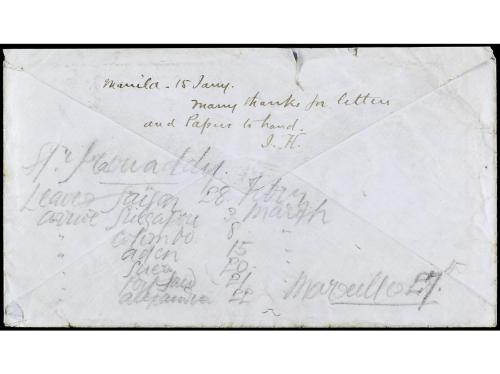 Manila - 15 Jany.
Many thanks for letters
and Papers to hand.
J. H.
Str Irrouaddy.
Leaves Saigon 28 Febry
arrive Singapore 3 March
" Colombo 8 "
" aden 15
" Suez 20
" Port Said 21
" alexandria 22
Marseilles 27th